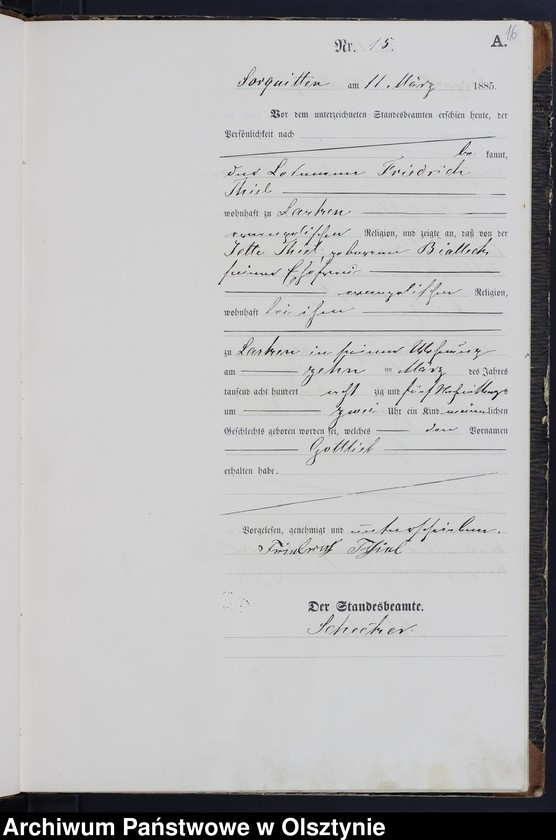 16
Nr. 15. A.
Sorquitten am 11. März 1885.
Vor dem unterzeichneten Standesbeamten erschien heute, der
Persönlichkeit nach
be kannt,
der Friedrich
Thiel
wohnhaft zu
evangelischer Religion, und zeigte an, daß von der
Jette Thiel, geborene
seiner Ehefrau
evangelischer Religion,
wohnhaft bei ihm
zu in seiner Wohnung
am zehn ten März des Jahres
tausend acht hundert acht zig und fünf Nachmittags
um zwei Uhr ein Kind männlichen
Geschlechts geboren worden sei, welches den Vornamen
Gottlieb
erhalten habe.
Vorgelesen, genehmigt und unterschrieben.
Friedrich Thiel
Der Standesbeamte.
Archiwum Państwowe w Olsztynie